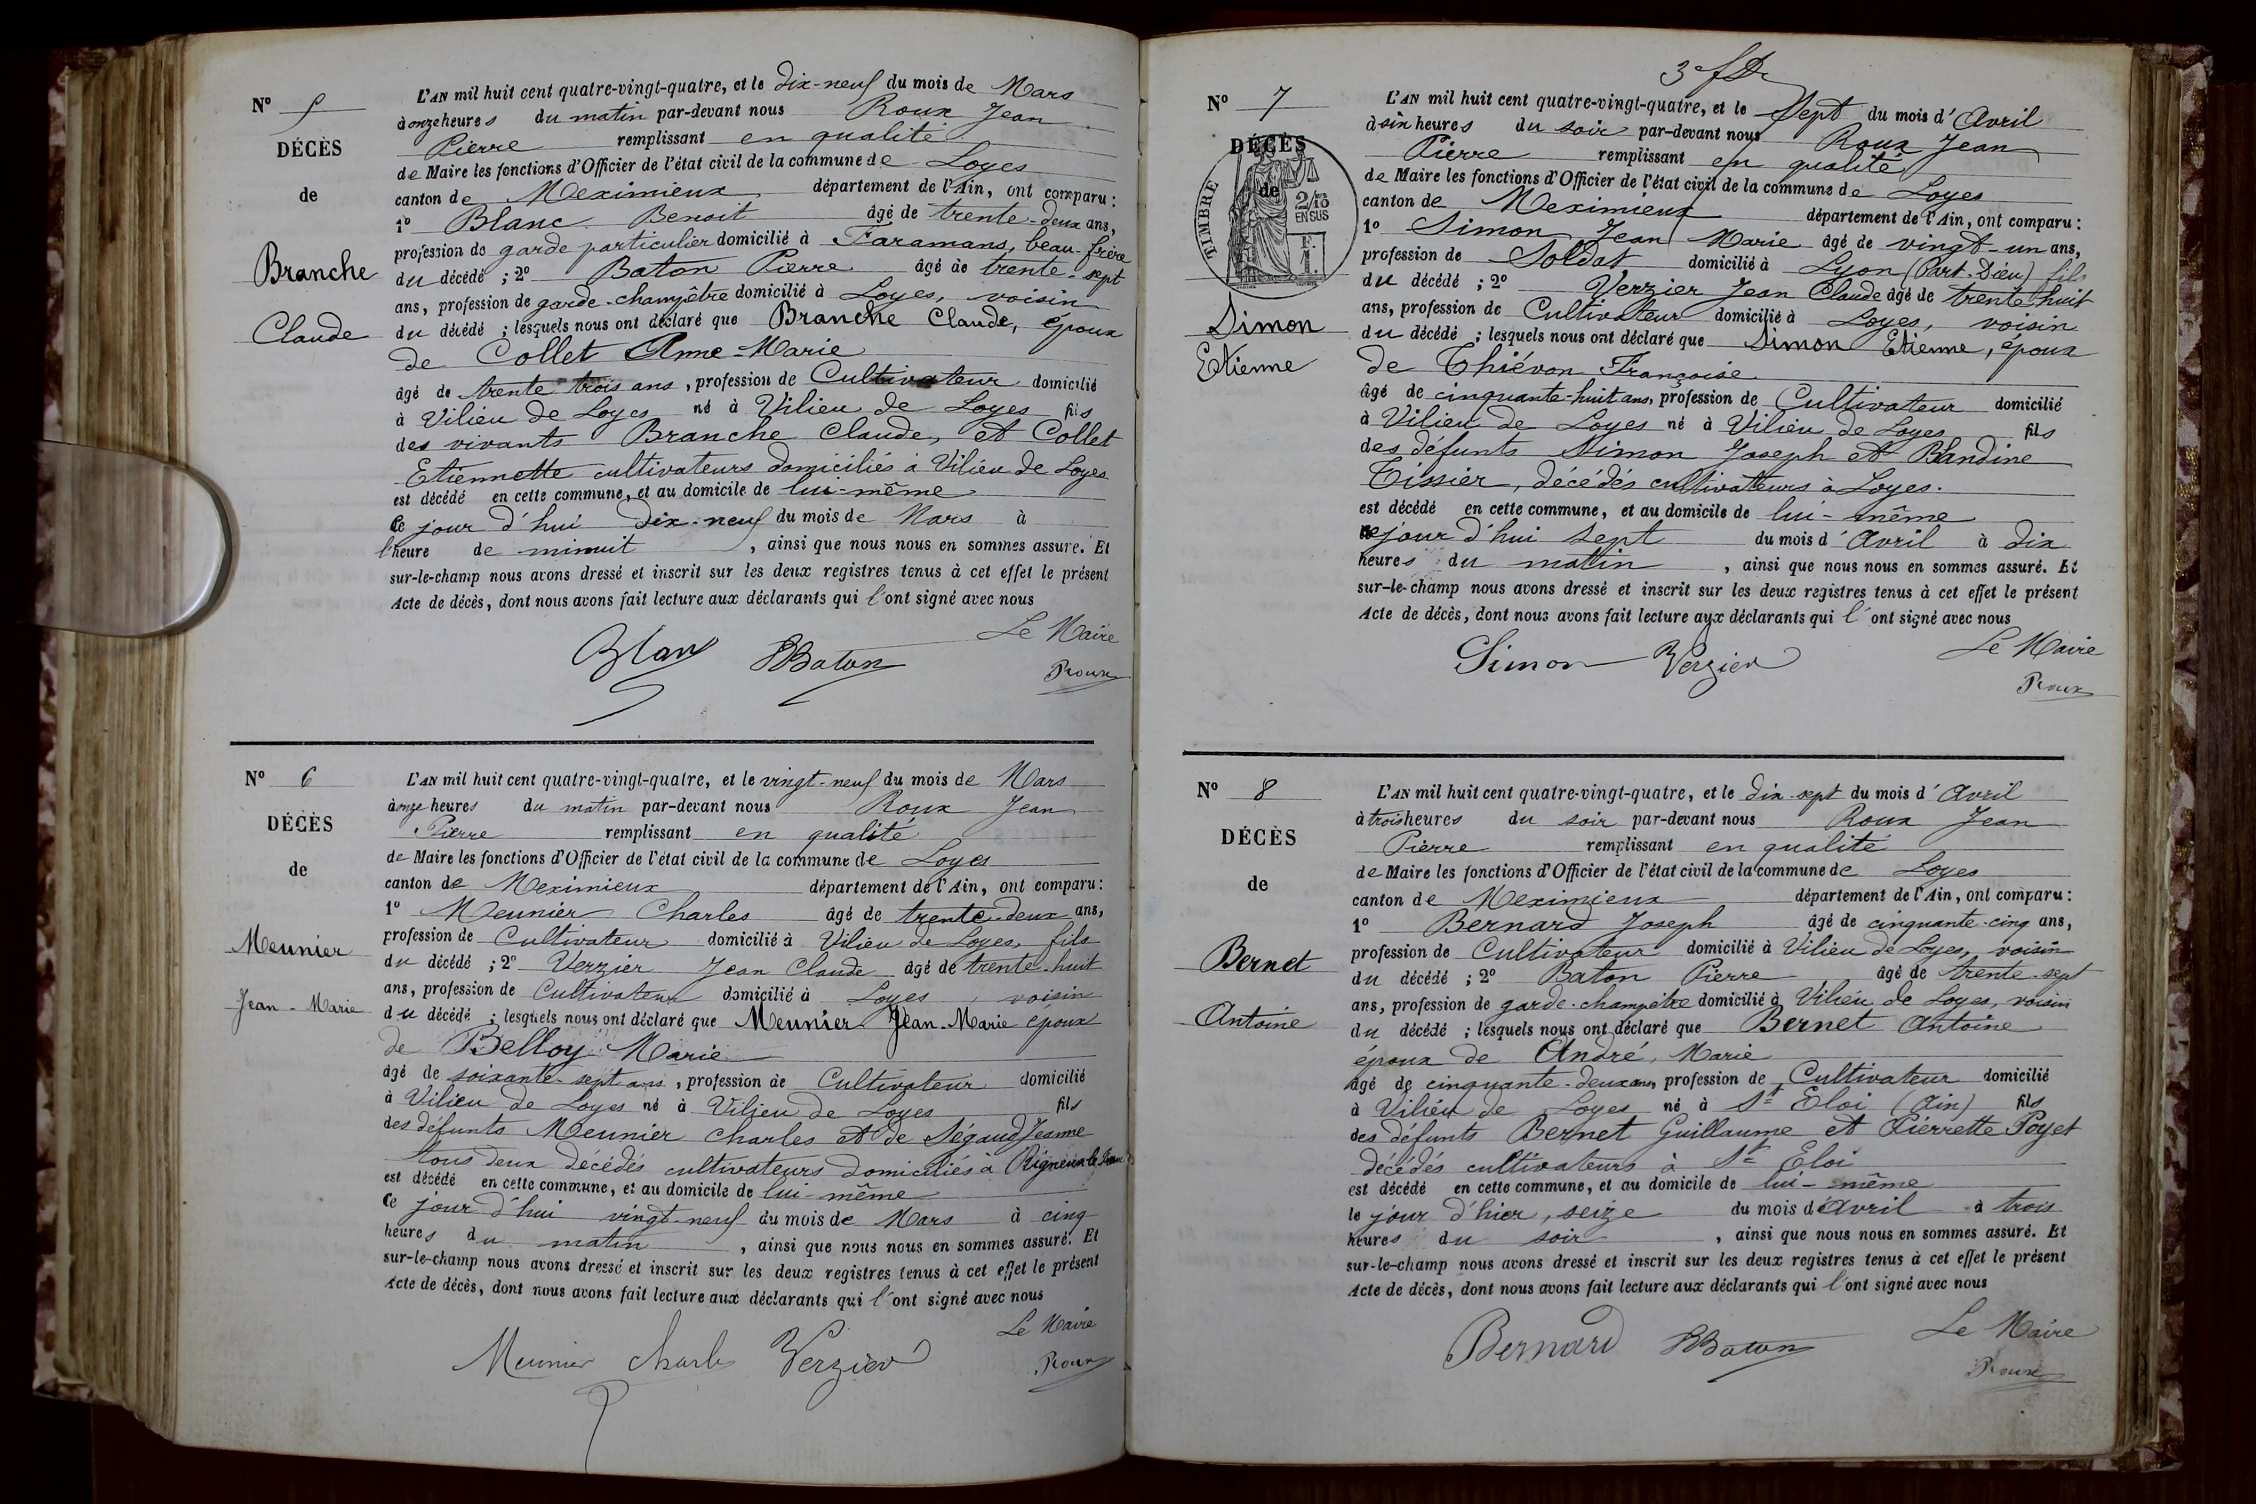 N° 5
DÉCÈS
de
Branche
Claude
L'AN mil huit cent quatre-vingt-quatre, et le dix-neuf du mois de Mars
à onze heures du matin par-devant nous Roux Jean
Pierre remplissant en qualité
de Maire les fonctions d'Officier de l'état civil de la commune de Loyes
canton de Meximieux département de l'Ain, ont comparu :
1° Blanc Benoit âgé de trente-deux ans,
profession de garde particulier domicilié à Faramans, beau-frère
du décédé ; 2° Baton Pierre âgé de trente-sept
ans, profession de garde-champêtre domicilié à Loyes, voisin
du décédé ; lesquels nous ont déclaré que Branche Claude, époux
de Collet Anne-Marie
âgé de trente trois ans, profession de Cultivateur domicilié
à Vilieu de Loyes né à Vilieu de Loyes fils
des vivants Branche Claude, et Collet
Etiennette cultivateurs domiciliés à Vilieu de Loyes
est décédé en cette commune, et au domicile de lui-même
Ce jour d'hui dix-neuf du mois de Mars à
l'heure de minuit, ainsi que nous nous en sommes assuré. Et
sur-le-champ nous avons dressé et inscrit sur les deux registres tenus à cet effet le présent
Acte de décès, dont nous avons fait lecture aux déclarants qui l'ont signé avec nous
Le Maire
Blanc PBaton Roux
N° 6
DÉCÈS
de
Meunier
Jean-Marie
L'AN mil huit cent quatre-vingt-quatre, et le vingt-neuf du mois de Mars
à onze heures du matin par-devant nous Roux Jean
Pierre remplissant en qualité
de Maire les fonctions d'Officier de l'état civil de la commune de Loyes
canton de Meximieux département de l'Ain, ont comparu :
1° Meunier Charles âgé de trente-deux ans,
profession de Cultivateur domicilié à Vilieu de Loyes, fils
du décédé ; 2° Verzier Jean Claude âgé de trente-huit
ans, profession de Cultivateur domicilié à Loyes, voisin
du décédé ; lesquels nous ont déclaré que Meunier Jean-Marie époux
de Belloy Marie
âgé de soixante-sept ans, profession de Cultivateur domicilié
à Vilieu de Loyes né à Vilieu de Loyes fils
des défunts Meunier Charles et de Ségaud Jeanne
tous deux décédés cultivateurs domiciliés à Rignieux le Franc
est décédé en cette commune, et au domicile de lui-même
Ce jour d'hui vingt-neuf du mois de Mars à cinq
heures du matin, ainsi que nous nous en sommes assuré. Et
sur-le-champ nous avons dressé et inscrit sur les deux registres tenus à cet effet le présent
Acte de décès, dont nous avons fait lecture aux déclarants qui l'ont signé avec nous
Le Maire
Meunier Charles Verzier Roux
N° 7
DÉCÈS
de
TIMBRE
2/10
EN SUS
Simon
Etienne
L'AN mil huit cent quatre-vingt-quatre, et le Sept du mois d'Avril
à six heures du soir par-devant nous Roux Jean
Pierre remplissant en qualité
de Maire les fonctions d'Officier de l'état civil de la commune de Loyes
canton de Meximieux département de l'Ain, ont comparu :
1° Simon Jean Marie âgé de vingt-un ans,
profession de Soldat domicilié à Lyon (Part-Dieu) fils
du décédé ; 2° Verzier Jean Claude âgé de trente-huit
ans, profession de Cultivateur domicilié à Loyes, voisin
du décédé ; lesquels nous ont déclaré que Simon Etienne, époux
de Thiévon Françoise
âgé de cinquante-huit ans, profession de Cultivateur domicilié
à Vilieu de Loyes né à Vilieu de Loyes fils
des défunts Simon Joseph et Blandine
Tissier, décédés cultivateurs à Loyes.
est décédé en cette commune, et au domicile de lui-même
ce jour d'hui sept du mois d'Avril à dix
heures du matin, ainsi que nous nous en sommes assuré. Et
sur-le-champ nous avons dressé et inscrit sur les deux registres tenus à cet effet le présent
Acte de décès, dont nous avons fait lecture aux déclarants qui l'ont signé avec nous
Le Maire
Simon Verzier Roux
N° 8
DÉCÈS
de
Bernet
Antoine
L'AN mil huit cent quatre-vingt-quatre, et le dix-sept du mois d'Avril
à trois heures du soir par-devant nous Roux Jean
Pierre remplissant en qualité
de Maire les fonctions d'Officier de l'état civil de la commune de Loyes
canton de Meximieux département de l'Ain, ont comparu :
1° Bernard Joseph âgé de cinquante-cinq ans,
profession de Cultivateur domicilié à Vilieu de Loyes, voisin
du décédé ; 2° Baton Pierre âgé de trente-sept
ans, profession de garde-champêtre domicilié à Vilieu de Loyes, voisin
du décédé ; lesquels nous ont déclaré que Bernet Antoine
époux de André, Marie
âgé de cinquante-deux ans, profession de Cultivateur domicilié
à Vilieu de Loyes né à St Eloi (Ain) fils
des défunts Bernet Guillaume et Pierrette Poyet
décédés cultivateurs à St Eloi
est décédé en cette commune, et au domicile de lui-même
le jour d'hier, seize du mois d'Avril à trois
heures du soir, ainsi que nous nous en sommes assuré. Et
sur-le-champ nous avons dressé et inscrit sur les deux registres tenus à cet effet le présent
Acte de décès, dont nous avons fait lecture aux déclarants qui l'ont signé avec nous
Le Maire
Bernard PBaton Roux